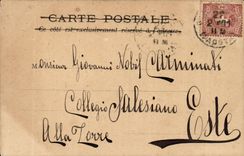 CARTE POSTALE
Ce côté est exclusivement réservé à l'adresse
Giovanni Nobil Carminati
Collegio Salesiano
Alla Torre Este